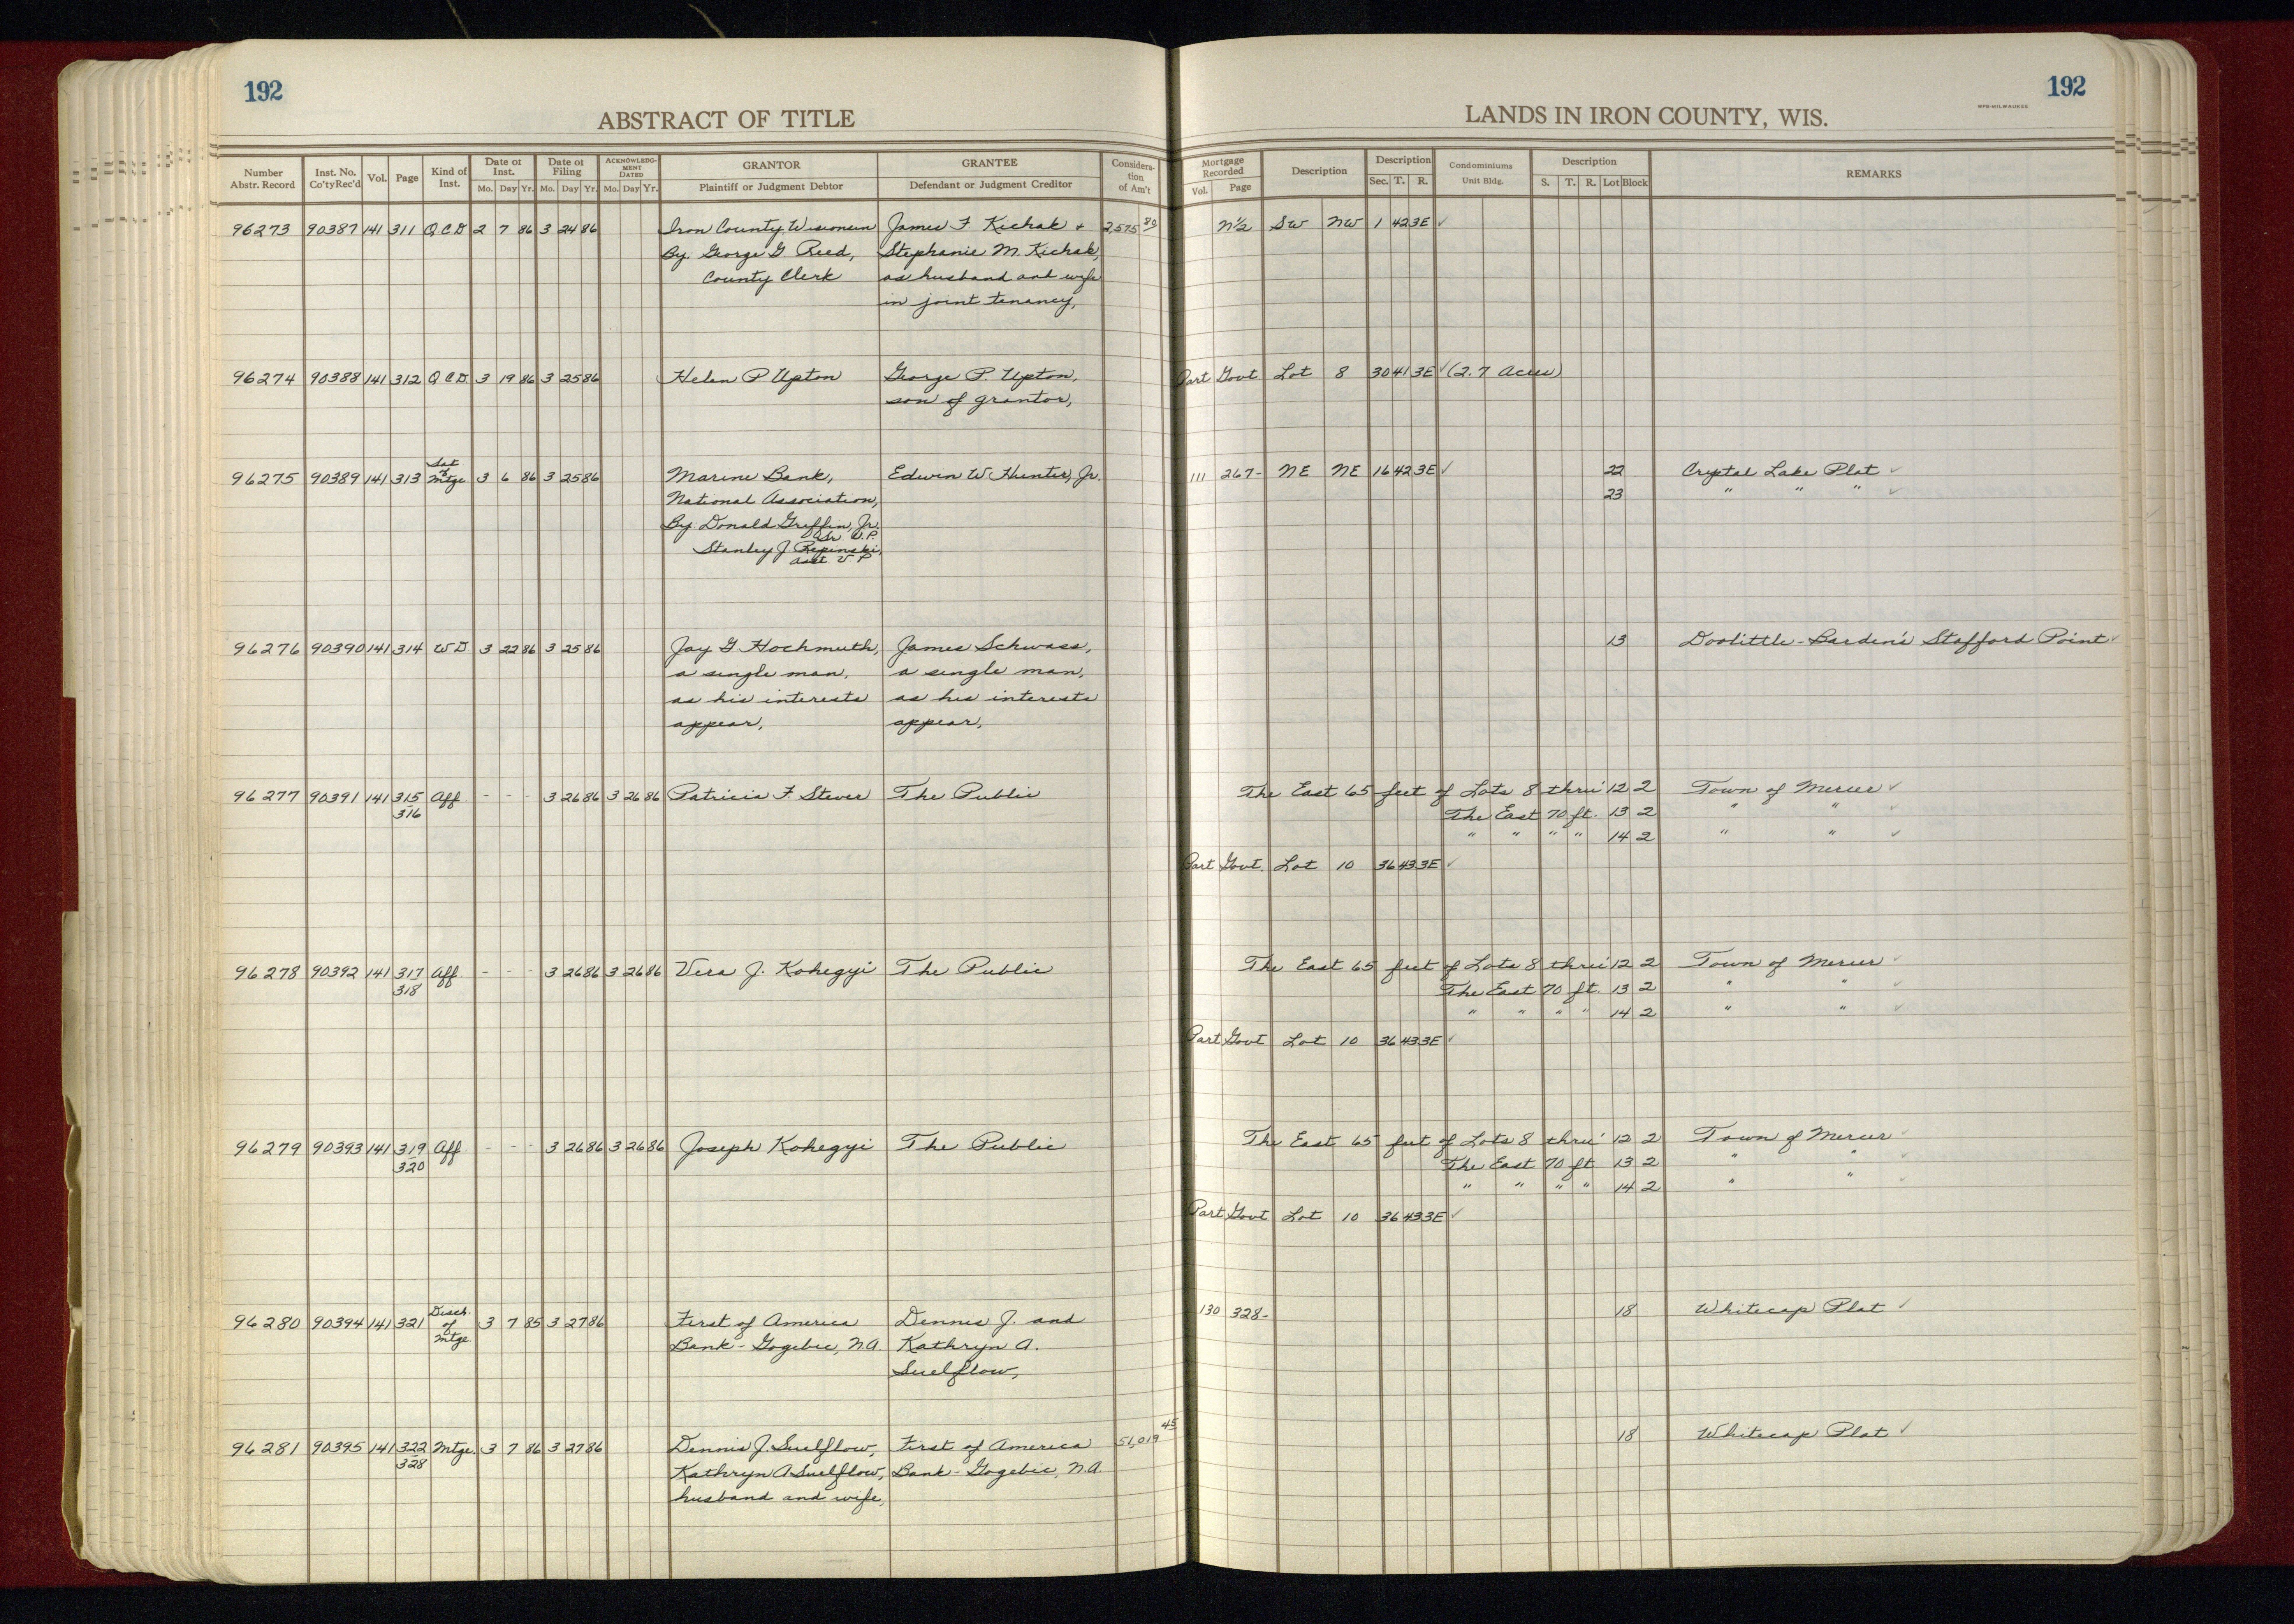 192
192
ABSTRACT OF TITLE
LANDS IN IRON COUNTY, WIS.
WPB-MILWAUKEE
Number Abstr. Record
Inst. No. Co'ty Rec'd
Vol.
Page
Kind of Inst.
Date of Inst.
Mo. Day Yr.
Date of Filing
Mo. Day Yr.
ACKNOWLEDGMENT DATED
Mo. Day Yr.
GRANTOR
Plaintiff or Judgment Debtor
GRANTEE
Defendant or Judgment Creditor
Consideration of Am't
Mortgage Recorded
Vol. Page
Description
Description
Sec. T. R.
Condominiums
Unit Bldg.
Description
S. T. R. Lot Block
REMARKS
96273 90387 141 311 Q C D 2 7 86 3 24 86 Iron County, Wisconsin James F Kichak + 2,575 80 N½ SW NW 1 42 3E ✓
By George G Reed, Stephanie M. Kichak,
County Clerk as husband and wife
in joint tenancy,
96274 90388 141 312 Q C D 3 19 86 3 25 86 Helen P Upton George P. Upton, Part Govt Lot 8 30 41 3E ✓ (2.7 Acres)
son of grantor,
96275 90389 141 313 Sat of Mtge 3 6 86 3 25 86 Marine Bank, Edwin W. Hunter, Jr. 111 267- NE NE 16 42 3E ✓ 22 Crystal Lake Plat ✓
National Association, 23 " " " ✓
By Donald Griffin, Jr.
Sr V.P.
Stanley J Repinski,
Asst V P
96276 90390 141 314 W D 3 22 86 3 25 86 Jay G Hochmuth, James Schwass, 13 Doolittle-Barden's Stafford Point ✓
a single man, a single man,
as his interests as his interests
appear, appear,
96277 90391 141 315 Aff - - - 3 26 86 3 26 86 Patricia F. Stever The Public The East 65 feet of Lots 8 thru' 12 2 Town of Mercer ✓
316 The East 70 ft. 13 2 " " ✓
" " " " 14 2 " " ✓
Part Govt. Lot 10 36 43 3E ✓
96278 90392 141 317 Aff - - - 3 26 86 3 26 86 Vera J. Kohegyi The Public The East 65 feet of Lots 8 thru' 12 2 Town of Mercer ✓
318 The East 70 ft. 13 2 " " ✓
" " " " 14 2 " " ✓
Part Govt Lot 10 36 43 3E ✓
96279 90393 141 319 Aff - - - 3 26 86 3 26 86 Joseph Kohegyi The Public The East 65 feet of Lots 8 thru' 12 2 Town of Mercer ✓
320 The East 70 ft 13 2 " " ✓
" " " " 14 2 " " ✓
Part Govt Lot 10 36 43 3E ✓
96280 90394 141 321 Disch. of Mtge. 3 7 85 3 27 86 First of America Dennis J. and 130 328- 18 Whitecap Plat ✓
Bank - Gogebic, N.A. Kathryn A.
Suelflow,
96281 90395 141 322 Mtge. 3 7 86 3 27 86 Dennis J. Suelflow, First of America 51,019 45 18 Whitecap Plat ✓
328 Kathryn A Suelflow, Bank - Gogebic, N.A.
husband and wife,